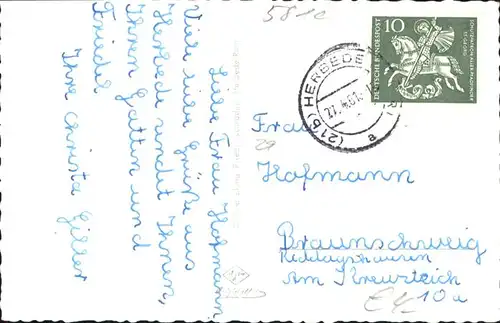 58 10
Liebe Frau Hofmann
Viele liebe Grüße aus
Herbede sendet Ihnen,
Ihrem Gatten und
Friedel
Ihre Christa Giller
10
DEUTSCHE BUNDESPOST
(21b) HERBEDE
27.4.61
a
Frau
Hofmann
Braunschweig
Riddagshausen
Am Kreuzteich
10a